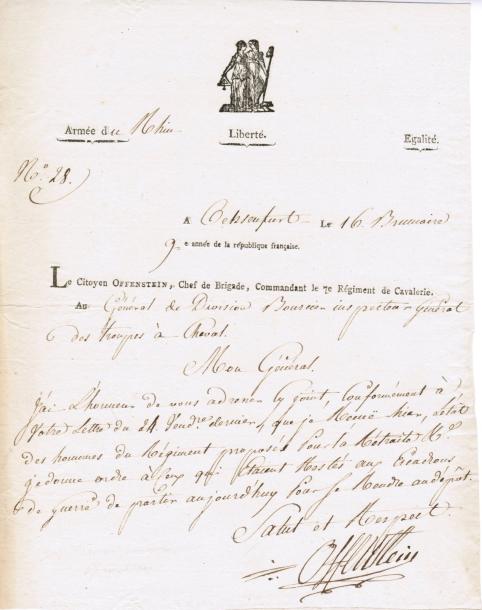 Armée du Rhin
Liberté.
Egalité.
No. 28.
A Ochsenfurt Le 16 Brumaire
9e année de la république française.
Le Citoyen OFFENSTEIN, Chef de Brigade, Commandant le 7e Régiment de Cavalerie.
Au Général de Division Bourcier inspecteur Général
des troupes à Cheval.
Mon Général.
J'ai L'honneur de vous adresser cy joint, Conformément à
Votre Lettre du 24 Vendre dernier, que je Reçus hier, L'état
des hommes du Régiment proposés Pour la Retraite
je donne ordre à Ceux qui étaient Restés aux Escadrons
de guerre, de partir aujourd'huy Pour se Rendre au dépôt.
Salut et Respect.
Offenstein